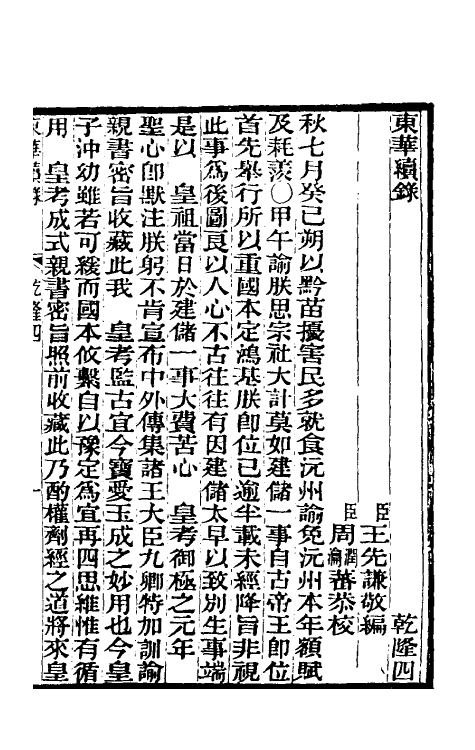 東華續錄 乾隆四
臣王先謙敬編
臣周潤蕃瀹蕃恭校
秋七月癸巳朔以黔苗擾害民多就食沅州諭免沅州本年額賦
及耗羨○甲午諭朕思宗社大計莫如建儲一事自古帝王卽位
首先舉行所以重國本定鴻基朕卽位已逾半載未經降旨非視
此事爲後圖良以人心不古往往有因建儲太早以致別生事端
是以 皇祖當日於建儲一事大費苦心 皇考御極之元年
聖心卽默注朕躬不肯宣布中外傳集諸王大臣九卿特加訓諭
親書密旨收藏此我 皇考監古宜今寶愛玉成之妙用也今皇
子沖幼雖若可緩而國本攸繫自以豫定爲宜再四思維惟有循
用 皇考成式親書密旨照前收藏此乃酌權劑經之道將來皇
東華續錄 乾隆四 一